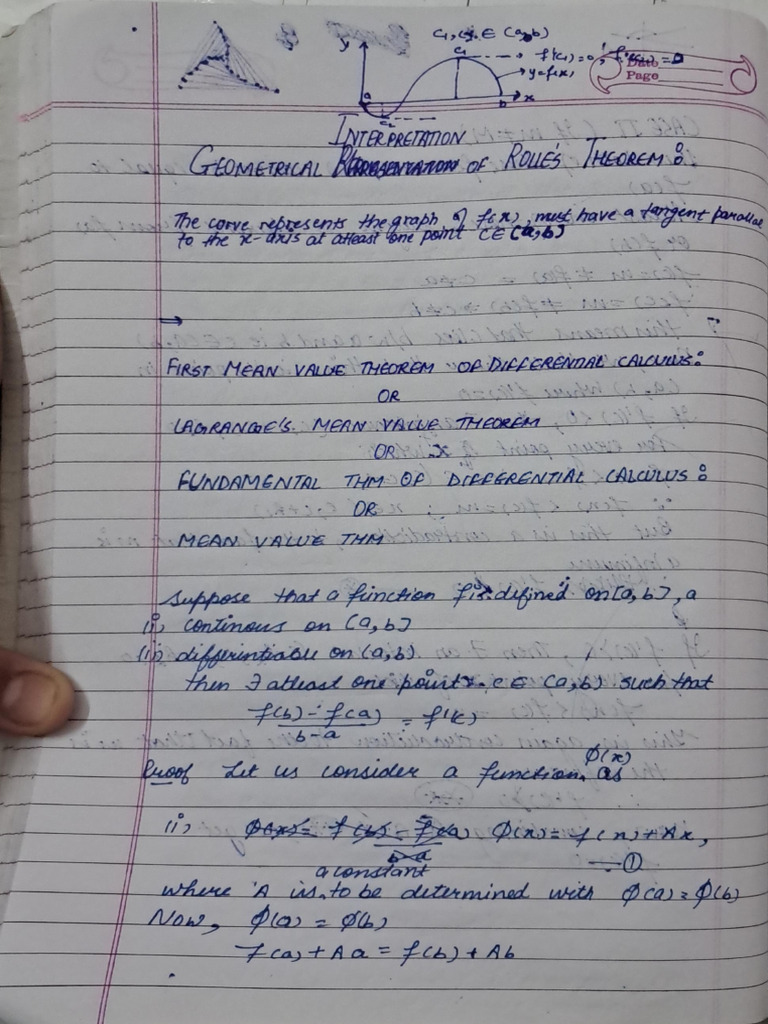 C₁, C₂ ∈ (a,b)
y
C₁
f'(C₁)=0, f'(C₂)=0
y=f(x)
a
b
x
C₂
Date
Page
INTERPRETATION
GEOMETRICAL REPRESENTATION OF ROLLE'S THEOREM :
The corve represents the graph of f(x), must have a tangent parallel
to the x-axis at atleast one point C∈(a,b)
→
FIRST MEAN VALUE THEOREM OF DIFFERENTIAL CALCULUS:
OR
LAGRANGE'S MEAN VALUE THEOREM
OR
FUNDAMENTAL THM OF DIFFERENTIAL CALCULUS:
OR
MEAN VALUE THM
Suppose that a function f is defined on [a,b], a
(i) continous on [a,b]
(ii) differintiable on (a,b)
then ∃ atleast one point c ∈ (a,b) such that
f(b) - f(a) / b-a = f'(c)
Φ(x)
Proof Let us consider a function as
(i) Φ(x) = f(b) - f(a) / b-a Φ(x) = f(x) + Ax,
—①
a constant
where A is to be determined with Φ(a) = Φ(b)
Now, Φ(a) = Φ(b)
f(a) + Aa = f(b) + Ab